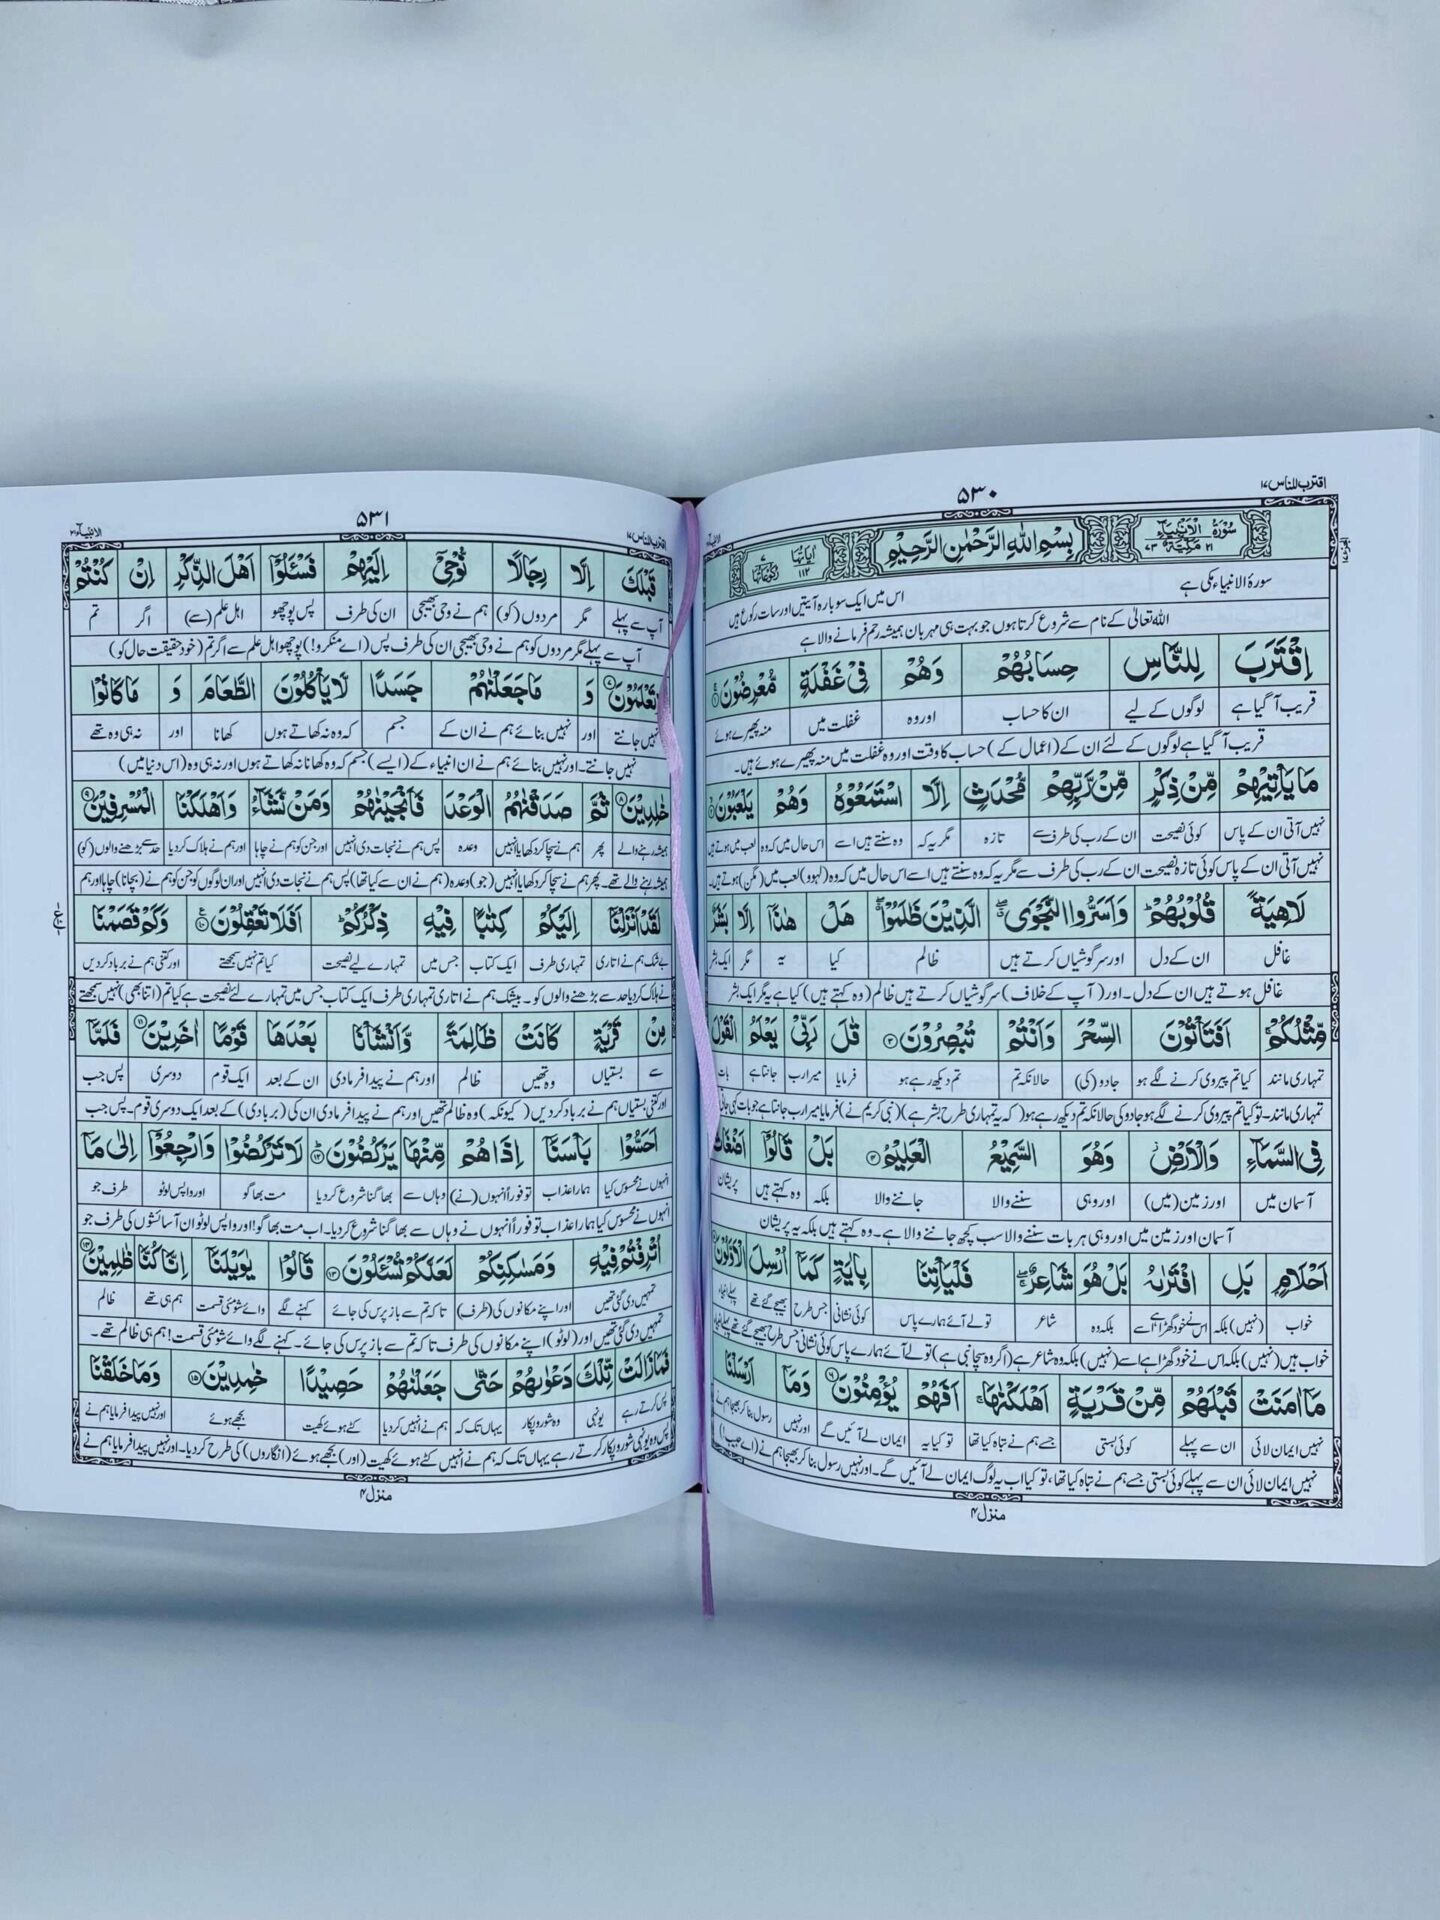 اقترب للناس ۱۷
۵۳۰
سُوْرَةُ الْاَنْۢبِيَآءِ مَكِّيَّةٌ ۲۱ ۷۳ بِسْمِ اللّٰهِ الرَّحْمٰنِ الرَّحِيْمِ اٰيَاتُهَا ۱۱۲ رُكُوْعَاتُهَا ۷
سورۃ الانبیاء مکی ہے اس میں ایک سو بارہ آیتیں اور سات رکوع ہیں
اللہ تعالیٰ کے نام سے شروع کرتا ہوں جو بہت ہی مہربان ہمیشہ رحم فرمانے والا ہے
اِقْتَرَبَ لِلنَّاسِ حِسَابُهُمْ وَهُمْ فِيْ غَفْلَةٍ مُّعْرِضُوْنَ
قریب آ گیا ہے لوگوں کے لیے ان کا حساب اور وہ غفلت میں منہ پھیرے ہوئے
قریب آ گیا ہے لوگوں کے لئے ان کے (اعمال کے) حساب کا وقت اور وہ غفلت میں منہ پھیرے ہوئے ہیں۔
مَا يَاْتِيْهِمْ مِّنْ ذِكْرٍ مِّنْ رَّبِّهِمْ مُّحْدَثٍ اِلَّا اسْتَمَعُوْهُ وَهُمْ يَلْعَبُوْنَ
نہیں آتی ان کے پاس کوئی نصیحت ان کے رب کی طرف سے تازہ مگر یہ کہ وہ سنتے ہیں اسے اس حال میں کہ وہ لعب میں ہوتے ہیں
نہیں آتی ان کے پاس کوئی تازہ نصیحت ان کے رب کی طرف سے مگر یہ کہ وہ سنتے ہیں اسے اس حال میں کہ وہ (لہو و) لعب میں (مگن) ہوتے ہیں۔
لَاهِيَةً قُلُوْبُهُمْ ؕ وَاَسَرُّوا النَّجْوَى الَّذِيْنَ ظَلَمُوْا هَلْ هٰذَآ اِلَّا بَشَرٌ
غافل ان کے دل اور سرگوشیاں کرتے ہیں ظالم کیا یہ مگر ایک بشر
غافل ہوتے ہیں ان کے دل۔ اور (آپ کے خلاف) سرگوشیاں کرتے ہیں ظالم (وہ کہتے ہیں) کیا ہے یہ مگر ایک بشر
مِّثْلُكُمْ اَفَتَاْتُوْنَ السِّحْرَ وَاَنْتُمْ تُبْصِرُوْنَ ۳ قٰلَ رَبِّيْ يَعْلَمُ الْقَوْلَ
تمہاری مانند کیا تم پیروی کرنے لگے ہو جادو (کی) حالانکہ تم تم دیکھ رہے ہو فرمایا میرا رب جانتا ہے بات
تمہاری مانند۔ تو کیا تم پیروی کرنے لگے ہو جادو کی حالانکہ تم دیکھ رہے ہو (کہ یہ تمہاری طرح بشر ہے) (نبی کریم نے) فرمایا میرا رب جانتا ہے جو بات کہی جاتی
فِي السَّمَآءِ وَالْاَرْضِ وَهُوَ السَّمِيْعُ الْعَلِيْمُ ۴ بَلْ قَالُوْٓا اَضْغَاثُ
آسمان میں اور زمین (میں) اور وہی سننے والا جاننے والا بلکہ وہ کہتے ہیں پریشان
آسمان اور زمین میں اور وہی ہر بات سننے والا سب کچھ جاننے والا ہے۔ وہ کہتے ہیں بلکہ یہ پریشان
اَحْلَامٍ بَلِ افْتَرٰىهُ بَلْ هُوَ شَاعِرٌ فَلْيَاْتِنَا بِاٰيَةٍ كَمَآ اُرْسِلَ الْاَوَّلُوْنَ
خواب (نہیں) بلکہ اس نے خود گھڑا ہے اسے بلکہ وہ شاعر تو لے آئے ہمارے پاس کوئی نشانی جس طرح بھیجے گئے تھے پہلے انبیاء
خواب ہیں (نہیں) بلکہ اس نے خود گھڑا ہے اسے (نہیں) بلکہ وہ شاعر ہے (اگر وہ سچا نبی ہے) تو لے آئے ہمارے پاس کوئی نشانی جس طرح بھیجے گئے تھے پہلے انبیاء
مَآ اٰمَنَتْ قَبْلَهُمْ مِّنْ قَرْيَةٍ اَهْلَكْنٰهَا اَفَهُمْ يُؤْمِنُوْنَ ۶ وَمَآ اَرْسَلْنَا
نہیں ایمان لائی ان سے پہلے کوئی بستی جسے ہم نے تباہ کیا تھا تو کیا یہ ایمان لے آئیں گے اور نہیں رسول بنا کر بھیجا ہم نے
نہیں ایمان لائی ان سے پہلے کوئی بستی جسے ہم نے تباہ کیا تھا، تو کیا اب یہ لوگ ایمان لے آئیں گے۔ اور نہیں رسول بنا کر بھیجا ہم نے (اے حبیب!)
منزل ۴
اقترب للناس ۱۷
۵۳۱
الانبیآء ۲۱
قَبْلَكَ اِلَّا رِجَالًا نُّوْحِيْٓ اِلَيْهِمْ فَسْـَٔلُوْٓا اَهْلَ الذِّكْرِ اِنْ كُنْتُمْ
آپ سے پہلے مگر مردوں (کو) ہم نے وحی بھیجی ان کی طرف پس پوچھو اہل علم (سے) اگر تم
آپ سے پہلے مگر مردوں کو ہم نے وحی بھیجی ان کی طرف پس (اے منکرو!) پوچھو اہل علم سے اگر تم (خود حقیقت حال کو)
تَعْلَمُوْنَ ۷ وَ مَا جَعَلْنٰهُمْ جَسَدًا لَّا يَاْكُلُوْنَ الطَّعَامَ وَ مَا كَانُوْا
نہیں جانتے اور نہیں بنائے ہم نے ان کے جسم کہ وہ نہ کھاتے ہوں کھانا اور نہ ہی وہ تھے
نہیں جانتے۔ اور نہیں بنائے ہم نے ان انبیاء کے (ایسے) جسم کہ وہ کھانا نہ کھاتے ہوں اور نہ ہی وہ (اس دنیا میں)
خٰلِدِيْنَ ۸ ثُمَّ صَدَقْنٰهُمُ الْوَعْدَ فَاَنْجَيْنٰهُمْ وَمَنْ نَّشَآءُ وَاَهْلَكْنَا الْمُسْرِفِيْنَ ۹
ہمیشہ رہنے والے پھر ہم نے سچا کر دکھایا انہیں وعدہ پس ہم نے نجات دی انہیں اور جن کو ہم نے چاہا اور ہم نے ہلاک کر دیا حد سے بڑھنے والوں (کو)
ہمیشہ رہنے والے تھے۔ پھر ہم نے سچا کر دکھایا انہیں (جو) وعدہ (ہم نے ان سے کیا تھا) پس ہم نے نجات دی انہیں اور ان لوگوں کو جن کو ہم نے (بچانا) چاہا اور ہم
لَقَدْ اَنْزَلْنَآ اِلَيْكُمْ كِتٰبًا فِيْهِ ذِكْرُكُمْ ؕ اَفَلَا تَعْقِلُوْنَ ۱۰ وَكَمْ قَصَمْنَا
بے شک ہم نے اتاری تمہاری طرف ایک کتاب جس میں تمہارے لیے نصیحت کیا تم نہیں سمجھتے اور کتنی ہم نے برباد کر دیں
نے ہلاک کر دیا حد سے بڑھنے والوں کو۔ بیشک ہم نے اتاری تمہاری طرف ایک کتاب جس میں تمہارے لئے نصیحت ہے کیا تم (اتنا بھی) نہیں سمجھتے
مِنْ قَرْيَةٍ كَانَتْ ظَالِمَةً وَّاَنْشَاْنَا بَعْدَهَا قَوْمًا اٰخَرِيْنَ ۱۱ فَلَمَّآ
سے بستیاں وہ تھیں ظالم اور ہم نے پیدا فرما دی ان کے بعد ایک قوم دوسری پس جب
اور کتنی بستیاں ہم نے برباد کر دیں (کیونکہ) وہ ظالم تھیں اور ہم نے پیدا فرما دی ان کی (بربادی) کے بعد ایک دوسری قوم۔ پس جب
اَحَسُّوْا بَاْسَنَآ اِذَا هُمْ مِّنْهَا يَرْكُضُوْنَ ۱۲ لَا تَرْكُضُوْا وَارْجِعُوْٓا اِلٰى مَآ
انہوں نے محسوس کیا ہمارا عذاب تو فوراً انہوں (نے) وہاں سے بھاگنا شروع کر دیا مت بھاگو اور واپس لوٹو طرف جو
انہوں نے محسوس کیا ہمارا عذاب تو فوراً انہوں نے وہاں سے بھاگنا شروع کر دیا۔ اب مت بھاگو! اور واپس لوٹو ان آسائشوں کی طرف جو
اُتْرِفْتُمْ فِيْهِ وَمَسٰكِنِكُمْ لَعَلَّكُمْ تُسْـَٔلُوْنَ ۱۳ قَالُوْا يٰوَيْلَنَآ اِنَّا كُنَّا ظٰلِمِيْنَ ۱۴
تمہیں دی گئی تھیں اور اپنے مکانوں کی (طرف) تاکہ تم سے باز پرس کی جائے کہنے لگے وائے شومئی قسمت ہم ہی تھے ظالم
تمہیں دی گئی تھیں اور (لوٹو) اپنے مکانوں کی طرف تاکہ تم سے باز پرس کی جائے۔ کہنے لگے وائے شومئی قسمت! ہم ہی ظالم تھے۔
فَمَا زَالَتْ تِّلْكَ دَعْوٰىهُمْ حَتّٰى جَعَلْنٰهُمْ حَصِيْدًا خٰمِدِيْنَ ۱۵ وَمَا خَلَقْنَا
پس کرتے رہے یونہی وہ شور و پکار یہاں تک کہ ہم نے انہیں کر دیا کٹے ہوئے کھیت بجھے ہوئے اور نہیں پیدا فرمایا ہم نے
پس وہ یونہی شور و پکار کرتے رہے یہاں تک کہ ہم نے انہیں کٹے ہوئے کھیت (اور) بجھے ہوئے (انگاروں) کی طرح کر دیا۔ اور نہیں پیدا فرمایا ہم نے
منزل ۴